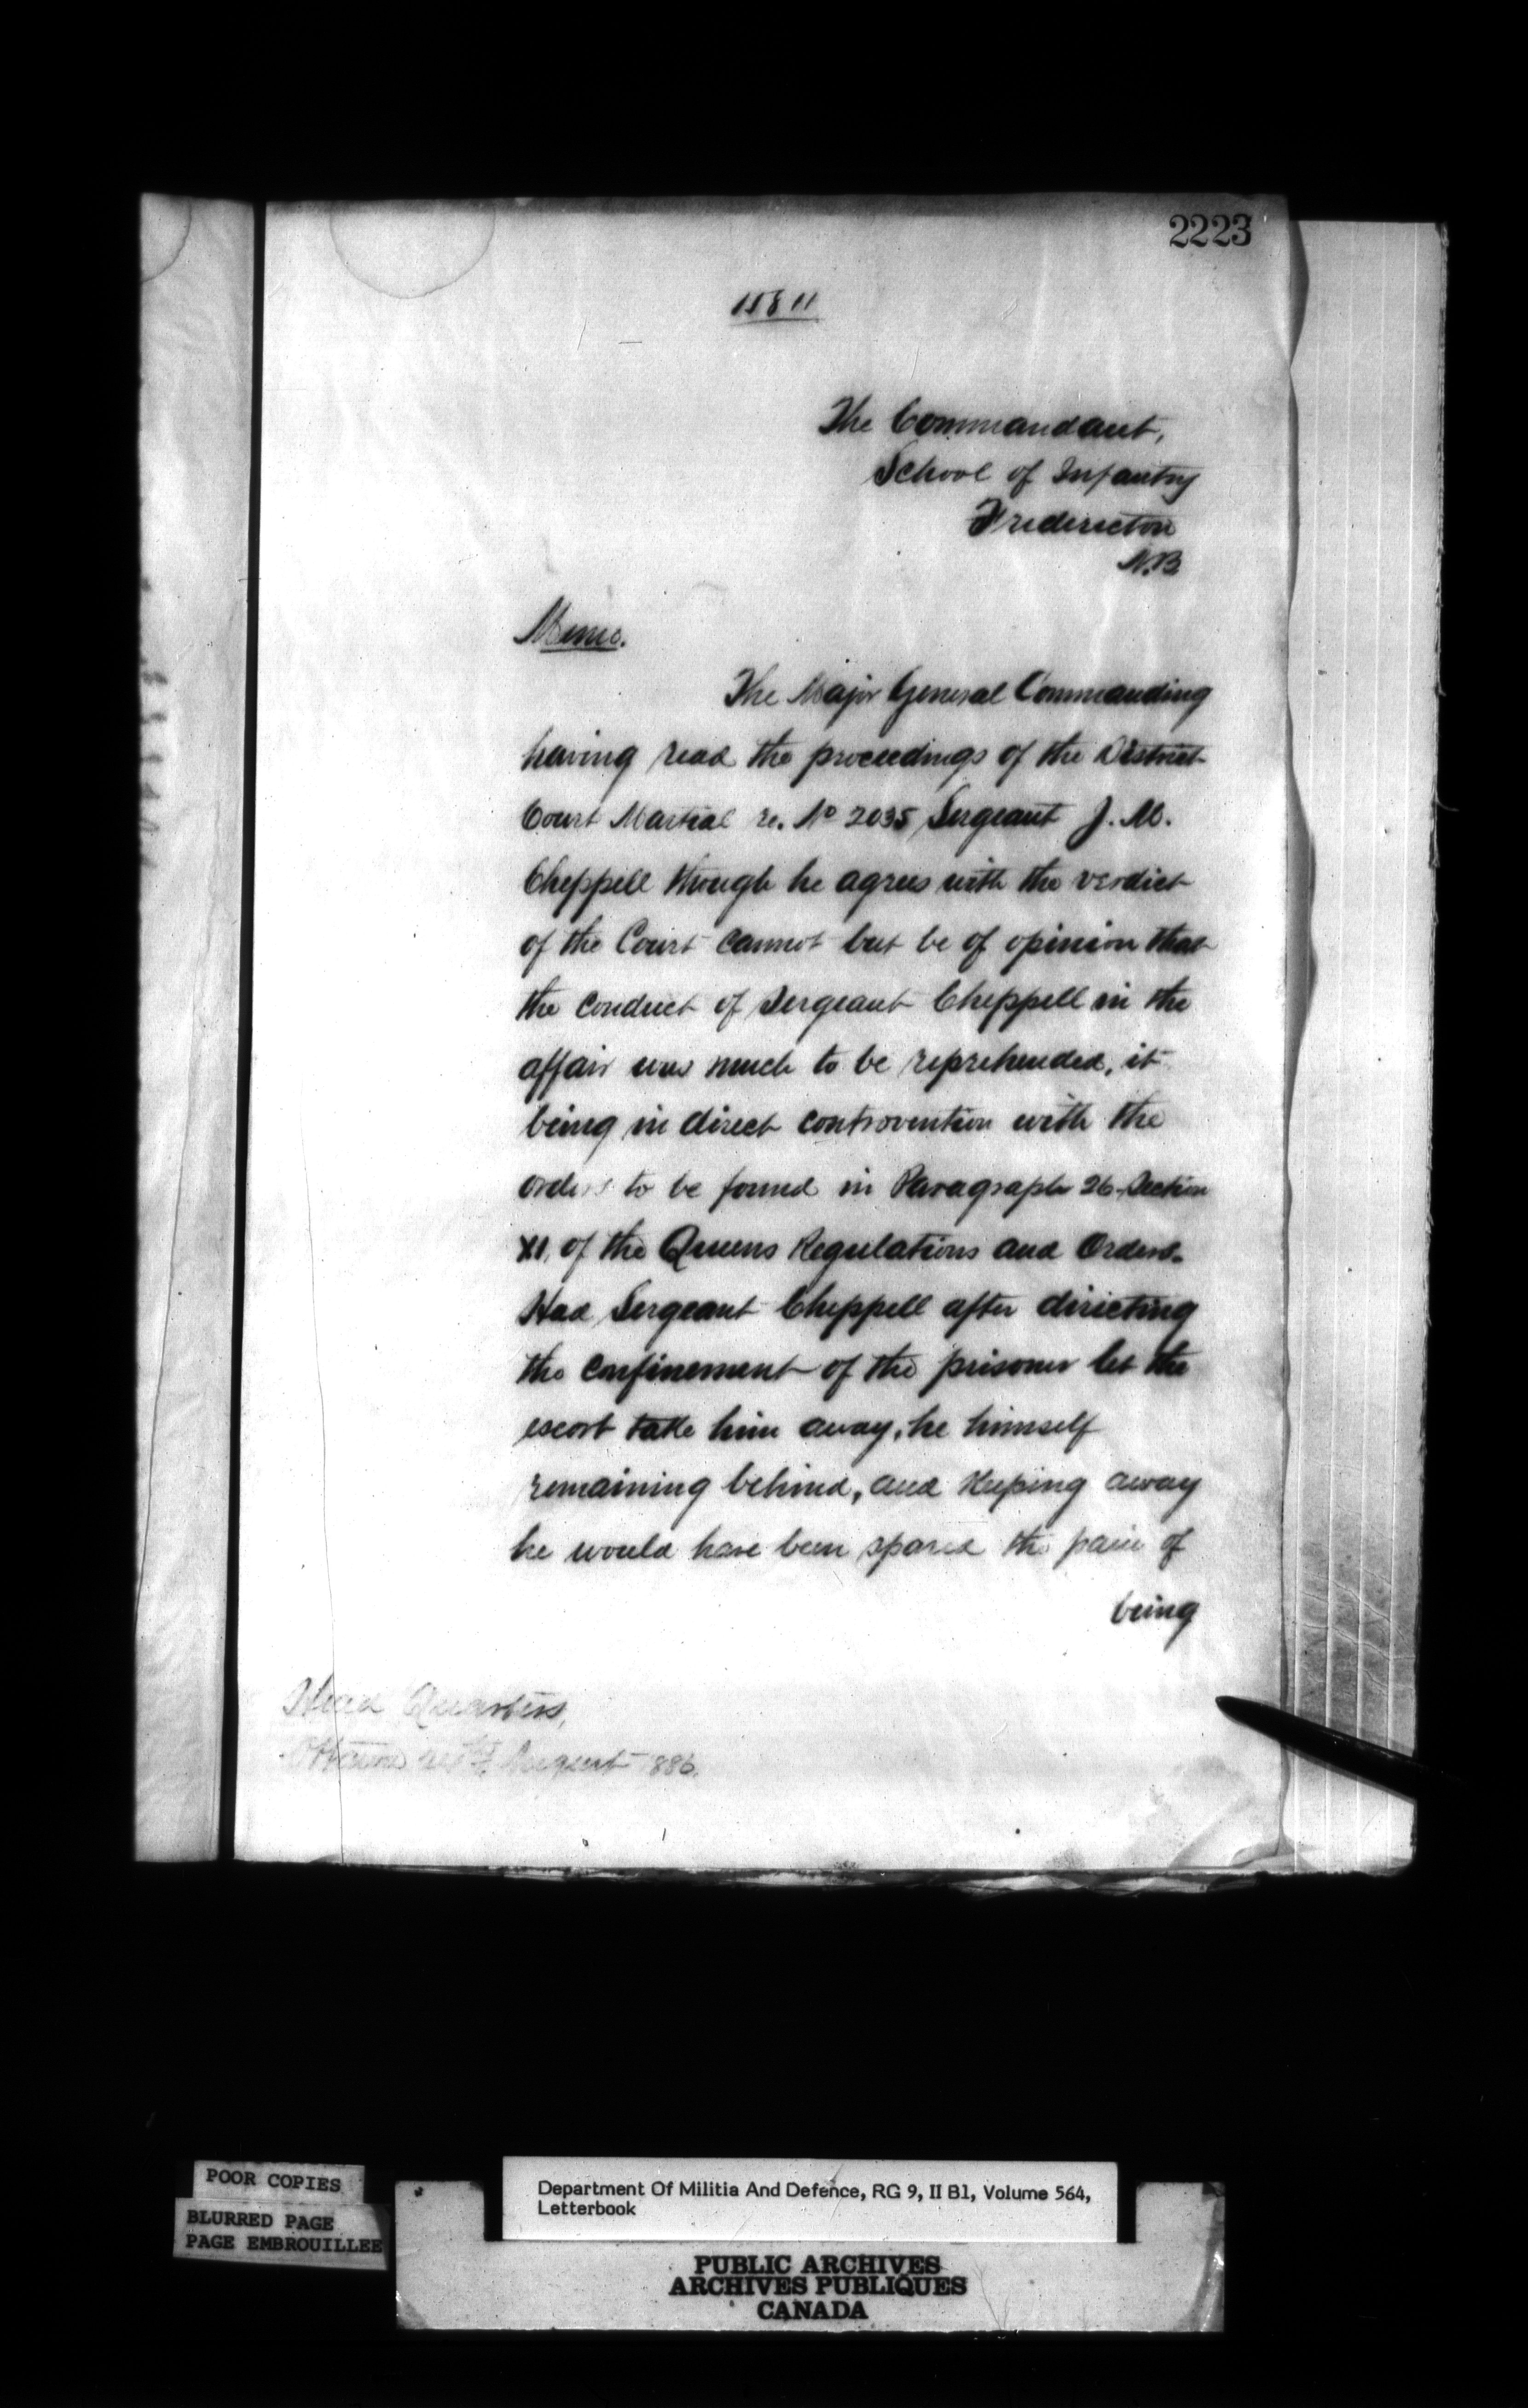 2223
15811
The Commandant,
School of Infantry
Fredericton
N.B
Memo.
The Major General Commanding
having read the proceedings of the District
Court Martial re. No 2035 Sergeant J. M.
Cheppell though he agrees with the verdict
of the Court cannot but be of opinion that
the conduct of Sergeant Cheppell in the
affair was much to be reprehended, it
being in direct controvention with the
orders to be found in Paragraph 26 Section
XI, of the Queens Regulations and Orders.
Had Sergeant Cheppell after directing
the confinement of the prisoner let the
escort take him away, he himself
remaining behind, and keeping away
he would have been spared the pain of
being
Head Quarters,
Ottawa August 1886.
POOR COPIES
BLURRED PAGE
PAGE EMBROUILLEE
Department Of Militia And Defence, RG 9, II B1, Volume 564,
Letterbook
PUBLIC ARCHIVES
ARCHIVES PUBLIQUES
CANADA